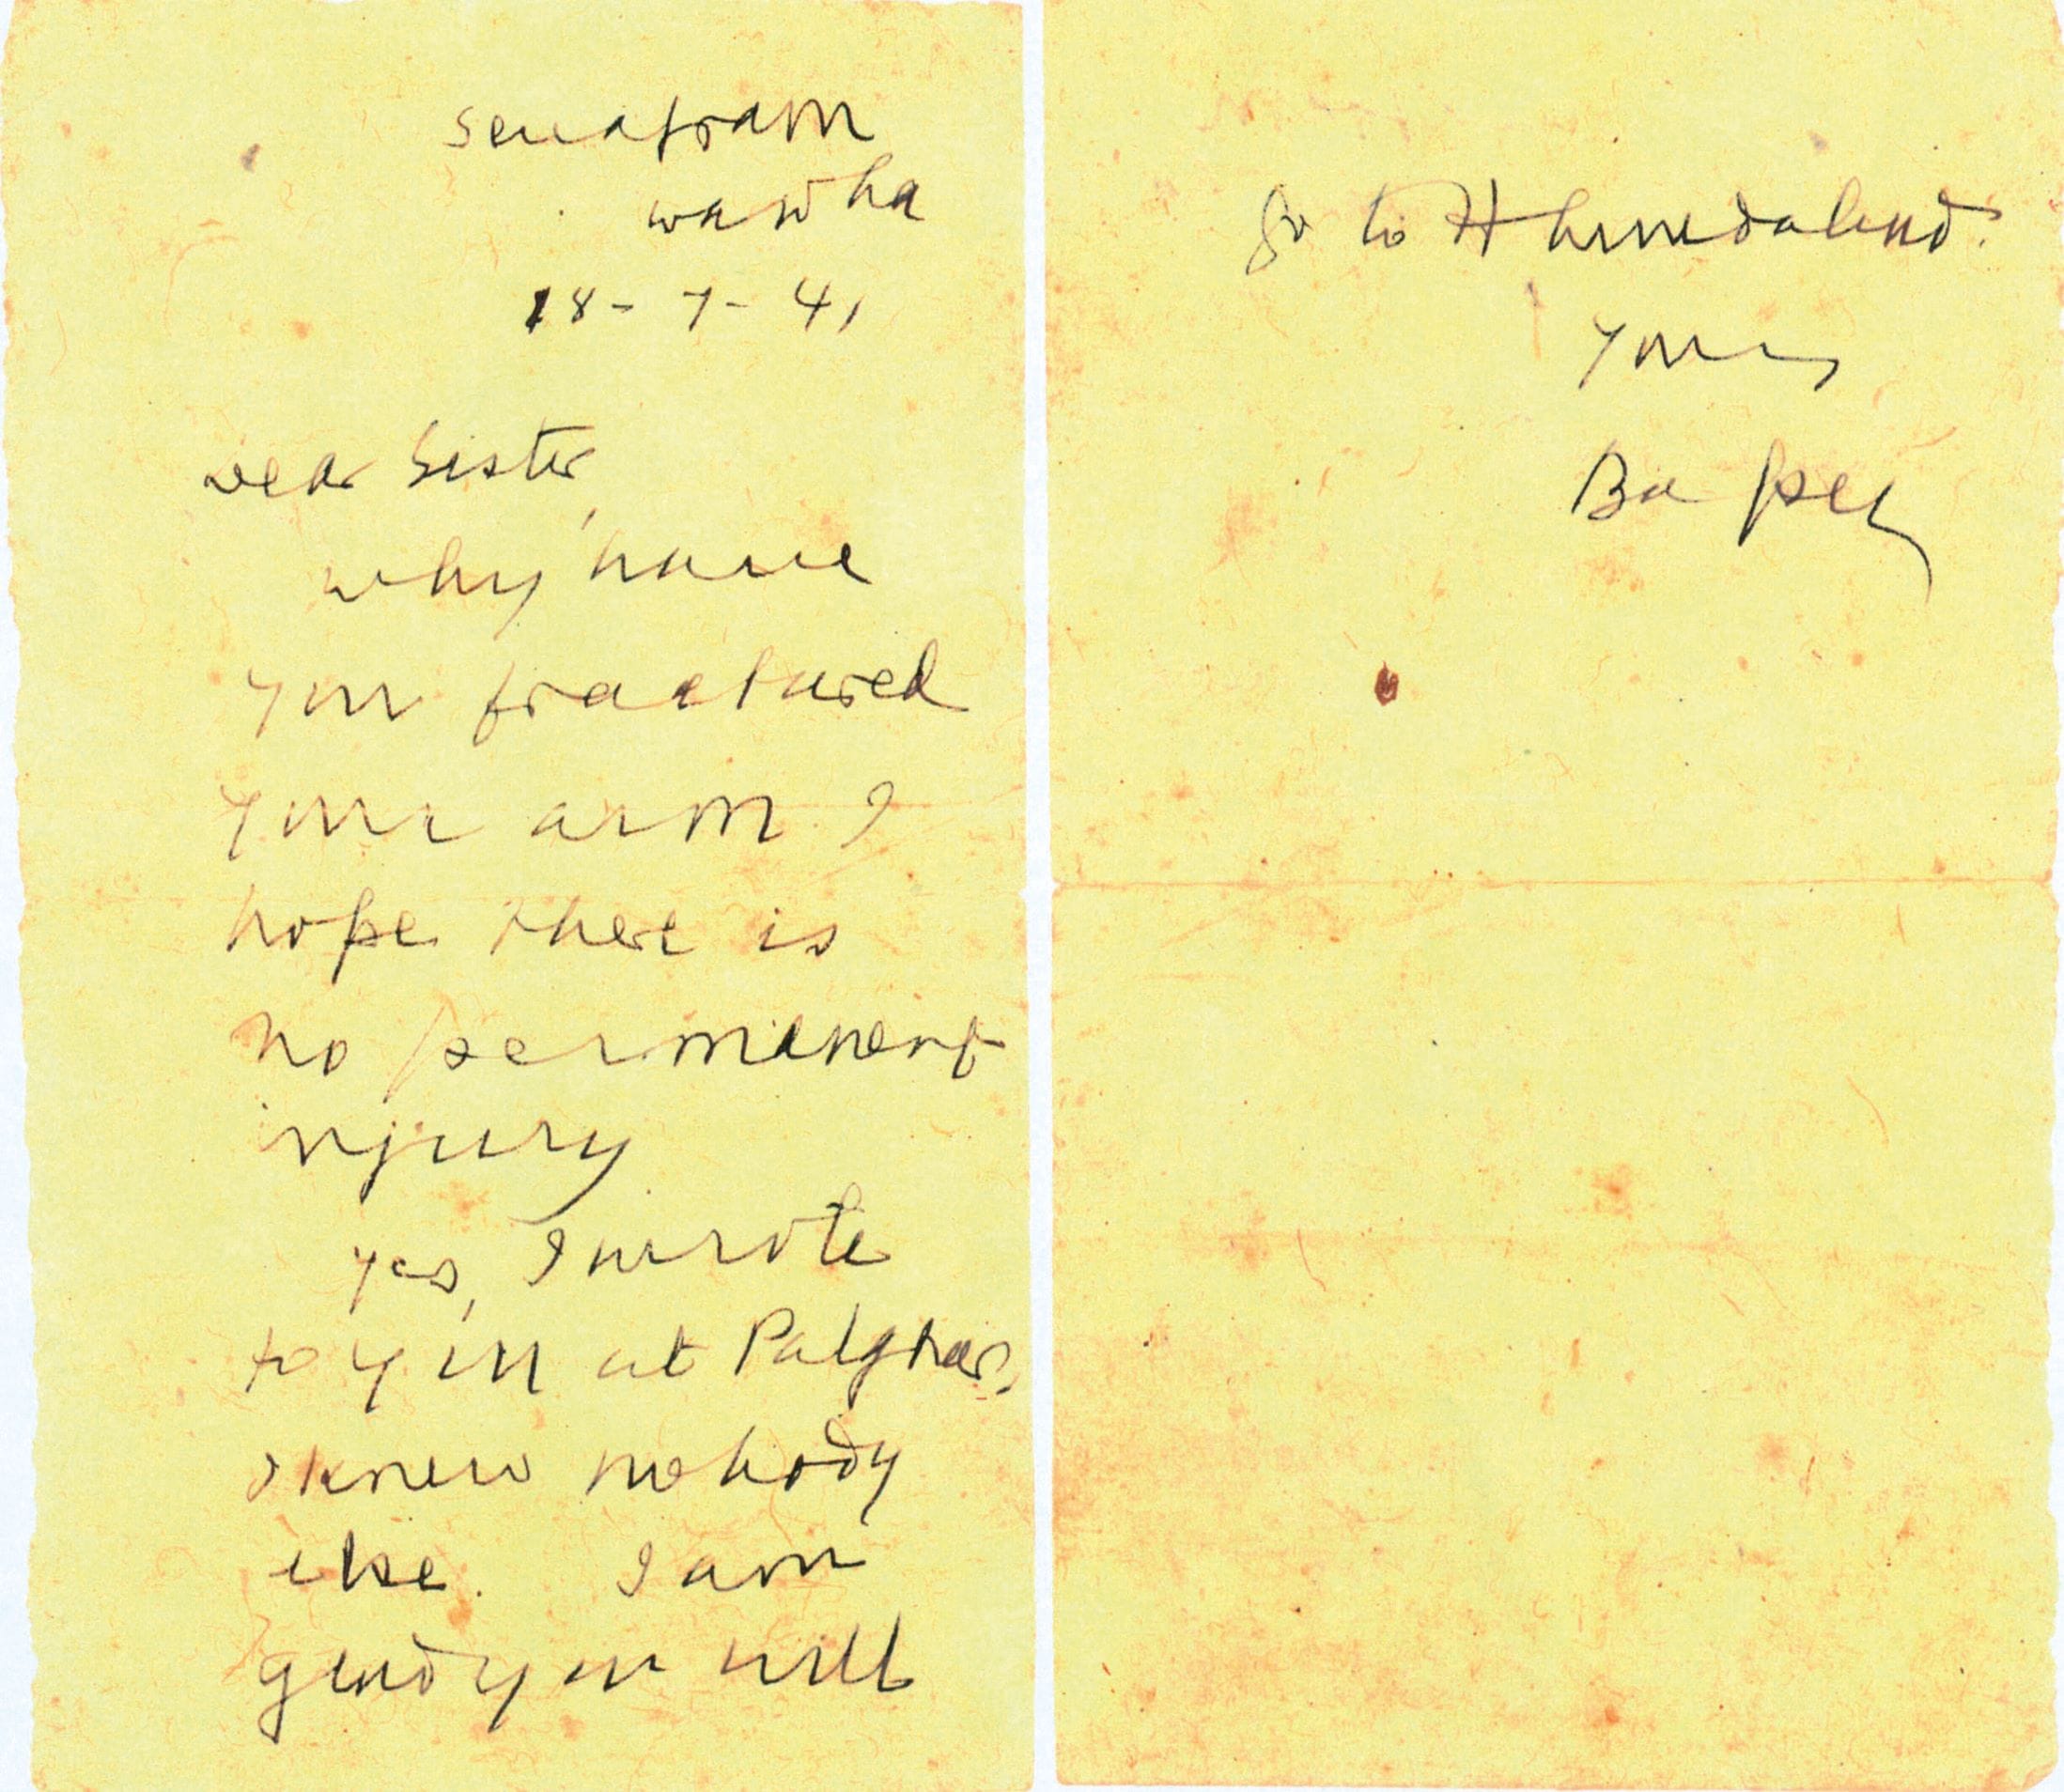 Sevagram
Wardha
18-7-41
Dear Sister,
why have
you fractured
your arm? I
hope there is
no permanent
injury
Yes, I wrote
to you at Palghar.
I knew nobody
else. I am
glad you will
go to Ahmedabad.
Yours
Bapu